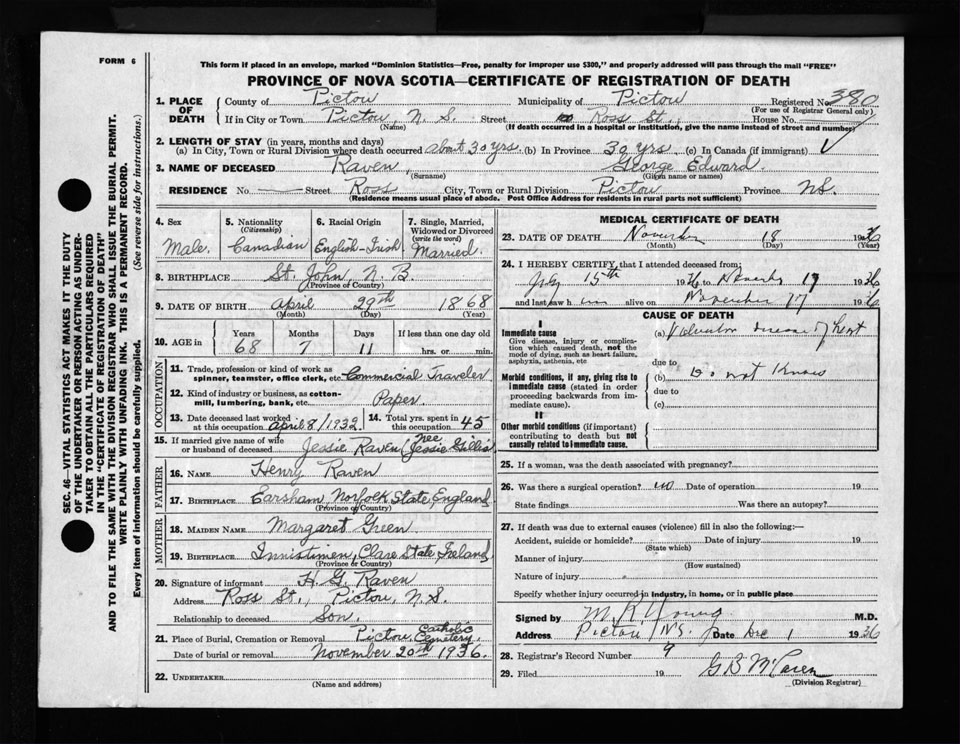 FORM 6
This form if placed in an envelope, marked "Dominion Statistics—Free, penalty for improper use $300," and properly addressed will pass through the mail "FREE"
PROVINCE OF NOVA SCOTIA—CERTIFICATE OF REGISTRATION OF DEATH
1. PLACE OF DEATH
County of Pictou Municipality of Pictou Registered No. 380
(For use of Registrar General only)
If in City or Town Pictou, N. S. Street Ross St., House No.
(Name) (If death occurred in a hospital or institution, give the name instead of street and number)
2. LENGTH OF STAY (in years, months and days)
(a) In City, Town or Rural Division where death occurred about 30 yrs. (b) In Province 30 yrs. (c) In Canada (if immigrant)
3. NAME OF DECEASED Raven, George Edward.
(Surname) (Given name or names)
RESIDENCE No. Street Ross City, Town or Rural Division Pictou Province N.S.
(Residence means usual place of abode. Post Office Address for residents in rural parts not sufficient)
4. Sex
Male.
5. Nationality
(Citizenship)
Canadian
6. Racial Origin
English-Irish.
7. Single, Married, Widowed or Divorced
(write the word)
Married.
8. BIRTHPLACE St. John, N. B.
(Province or Country)
9. DATE OF BIRTH April 29th 1868
(Month) (Day) (Year)
10. AGE in Years Months Days If less than one day old
68 7 11 hrs. or min.
OCCUPATION
11. Trade, profession or kind of work as spinner, teamster, office clerk, etc. Commercial Traveler
12. Kind of industry or business, as cotton-mill, lumbering, bank, etc. Paper.
13. Date deceased last worked at this occupation April 8/1932
14. Total yrs. spent in this occupation 45
15. If married give name of wife or husband of deceased Jessie Raven (nee Jessie Gillis)
FATHER
16. NAME Henry Raven
17. BIRTHPLACE Earsham, Norfolk State, England
(Province or Country)
MOTHER
18. MAIDEN NAME Margaret Green
19. BIRTHPLACE Innistimen, Clare State, Ireland
(Province or Country)
20. Signature of informant H. G. Raven
Address Ross St., Pictou, N.S.
Relationship to deceased Son.
21. Place of Burial, Cremation or Removal Pictou, Catholic Cemetery.
Date of burial or removal November 20th 1936.
22. UNDERTAKER
(Name and address)
MEDICAL CERTIFICATE OF DEATH
23. DATE OF DEATH November 18 1936
(Month) (Day) (Year)
24. I HEREBY CERTIFY, that I attended deceased from:
15th 1936 to November 17 1936
and last saw him alive on November 17 1936
CAUSE OF DEATH
I
Immediate cause
Give disease, injury or complication which caused death, not the mode of dying, such as heart failure, asphyxia, asthenia, etc
(a) Valvular disease of heart
due to
Morbid conditions, if any, giving rise to immediate cause (stated in order proceeding backwards from immediate cause).
(b) Do not know
due to
(c)
II
Other morbid conditions (if important) contributing to death but not causally related to immediate cause.
25. If a woman, was the death associated with pregnancy?
26. Was there a surgical operation? no Date of operation 19
State findings Was there an autopsy?
27. If death was due to external causes (violence) fill in also the following:—
Accident, suicide or homicide? Date of injury 19
(State which)
Manner of injury
(How sustained)
Nature of injury
Specify whether injury occurred in industry, in home, or in public place
Signed by M. R. Young M.D.
Address Pictou N.S. Date Dec 1 1936
28. Registrar's Record Number 9
29. Filed 19
(Division Registrar)
SEC. 46—VITAL STATISTICS ACT MAKES IT THE DUTY OF THE UNDERTAKER OR PERSON ACTING AS UNDERTAKER TO OBTAIN ALL THE PARTICULARS REQUIRED IN THE "CERTIFICATE OF REGISTRATION OF DEATH" AND TO FILE THE SAME WITH THE DIVISION REGISTRAR WHO SHALL ISSUE THE BURIAL PERMIT.
WRITE PLAINLY WITH UNFADING INK. THIS IS A PERMANENT RECORD.
Every item of information should be carefully supplied. (See reverse side for instructions.)